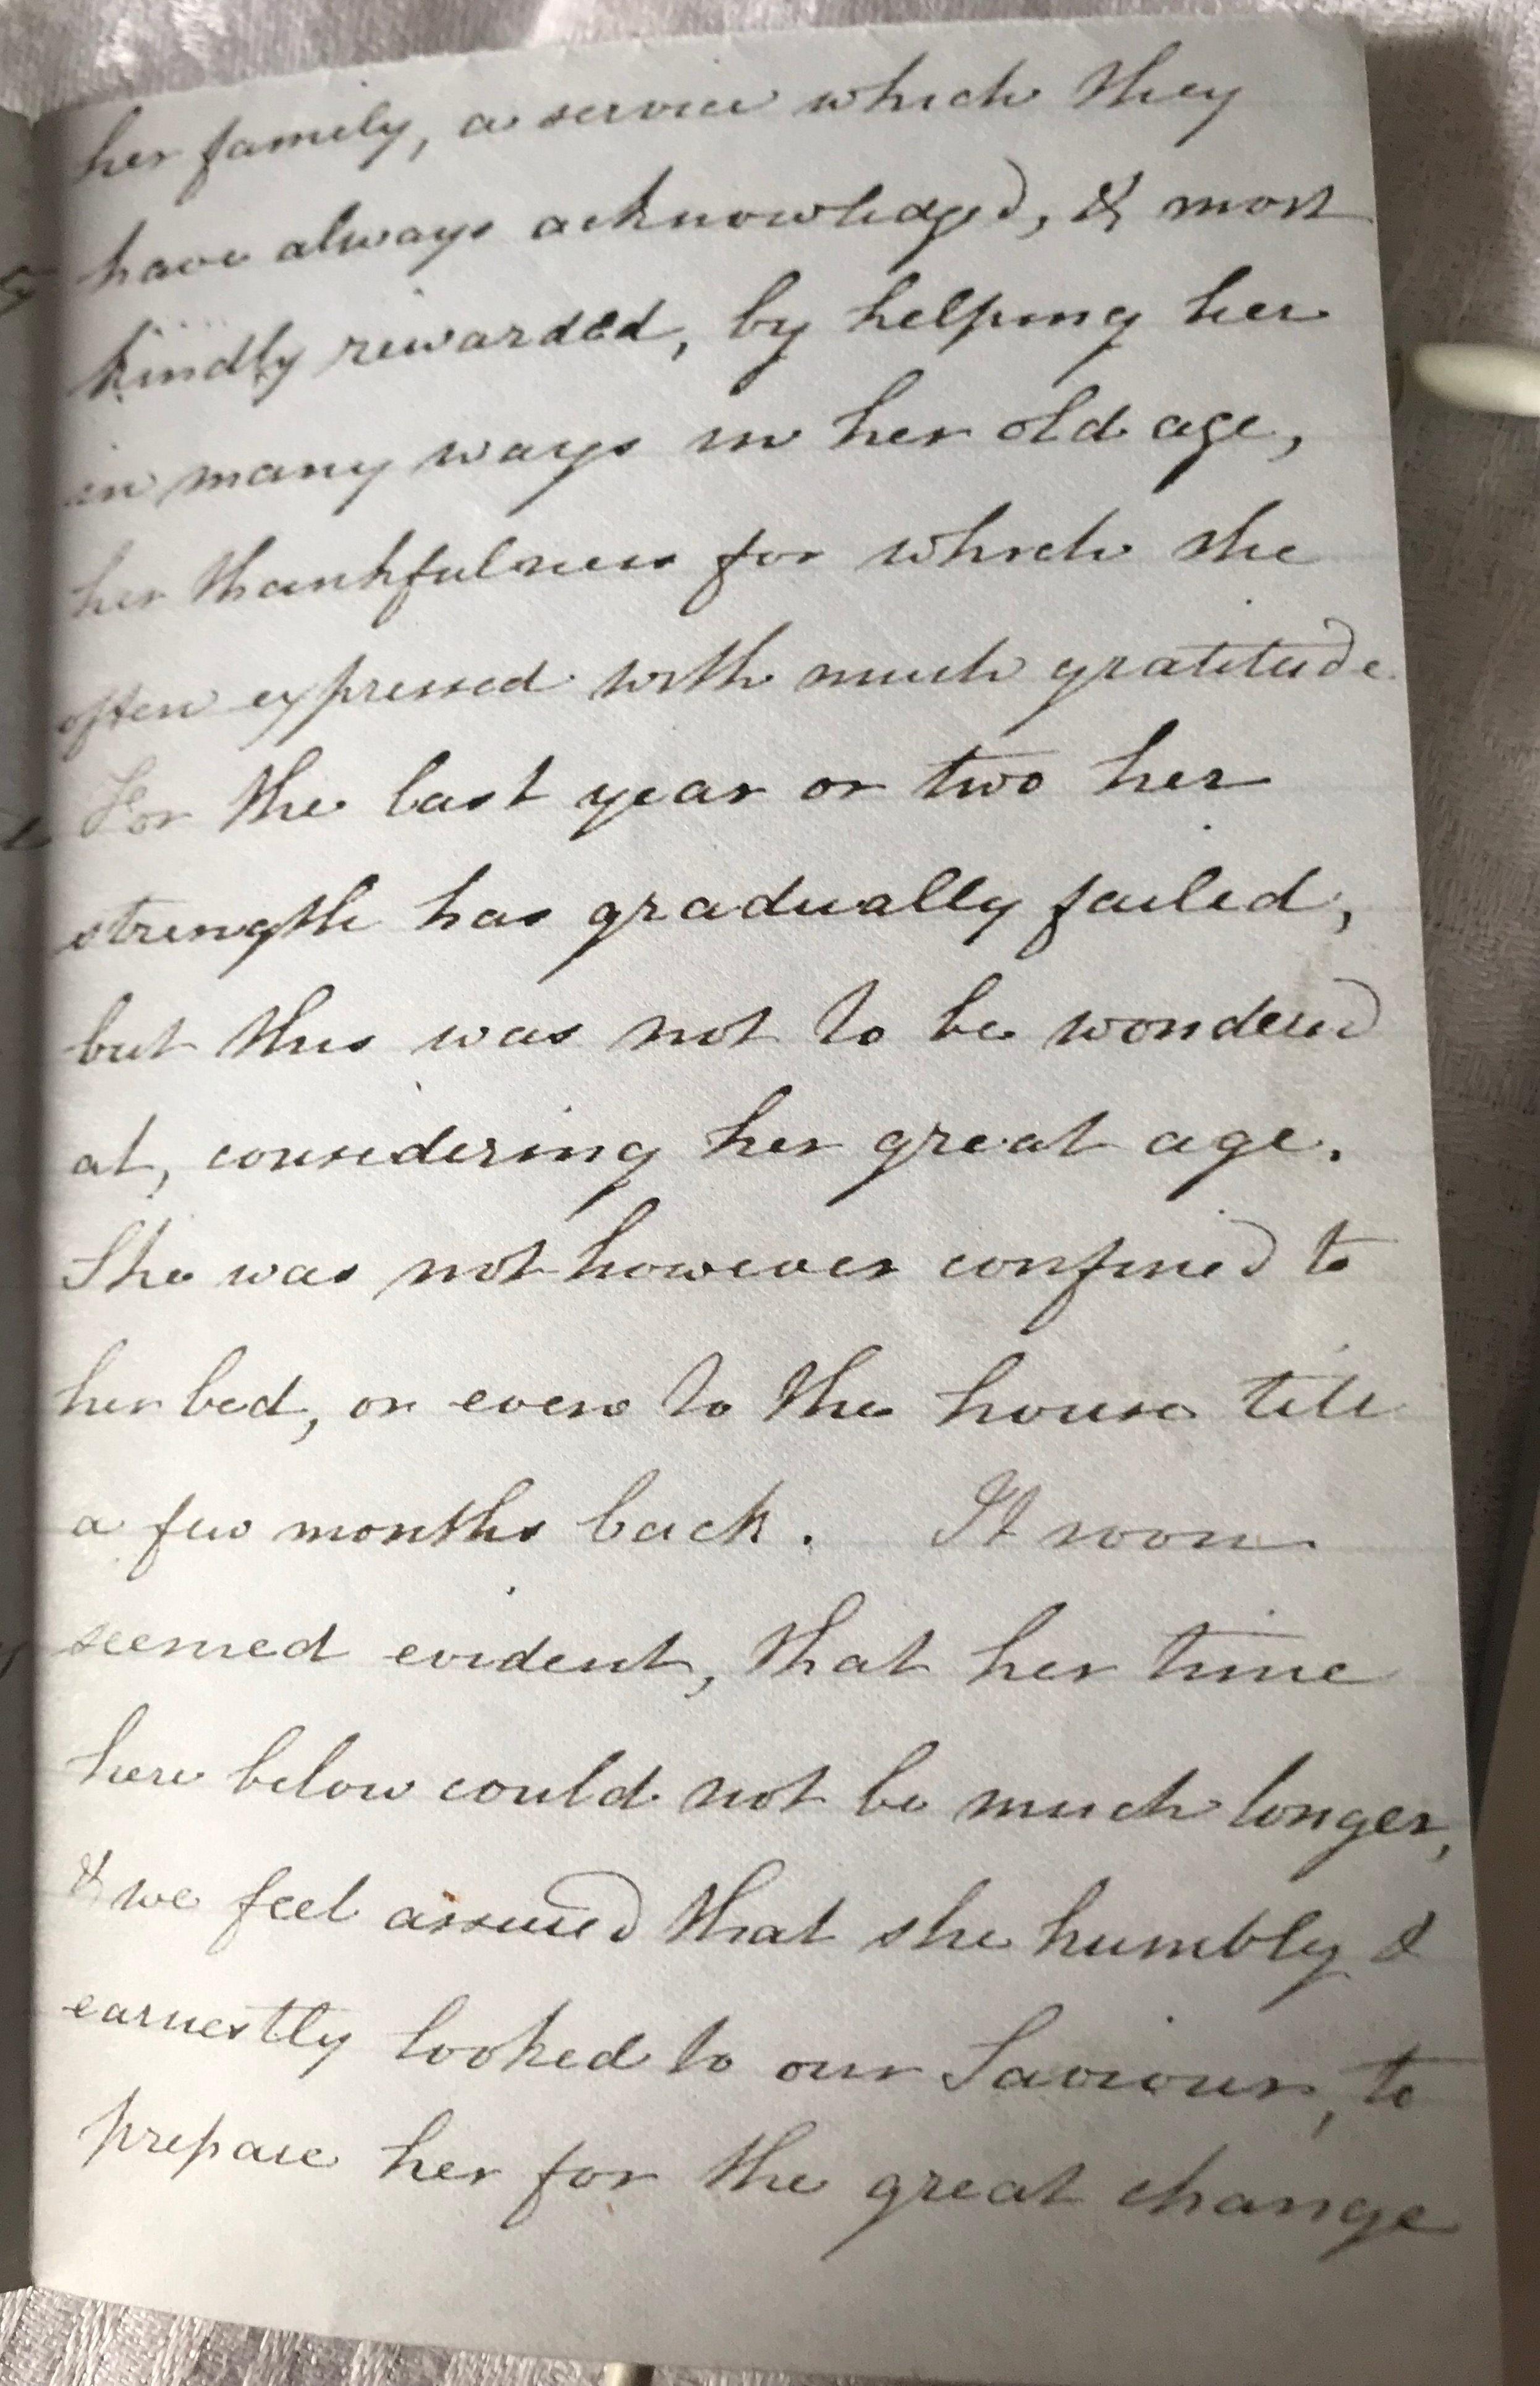 her family, a service which they
have always acknowledged, & most
kindly rewarded, by helping her
in many ways in her old age,
her thankfulness for which she
often expressed with much gratitude.
For the last year or two her
strength has gradually failed,
but this was not to be wondered
at, considering her great age.
She was not however confined to
her bed, or even to the house till
a few months back. It soon
seemed evident, that her time
here below could not be much longer,
& we feel assured that she humbly &
earnestly looked to our Saviour, to
prepare her for the great change